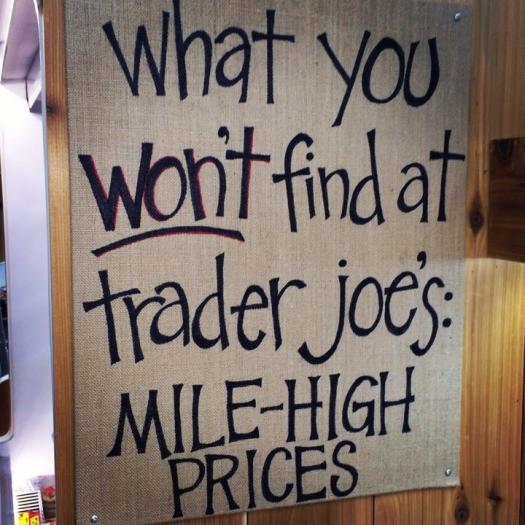 What you
won't find at
trader joe's:
MILE-HIGH
PRICES